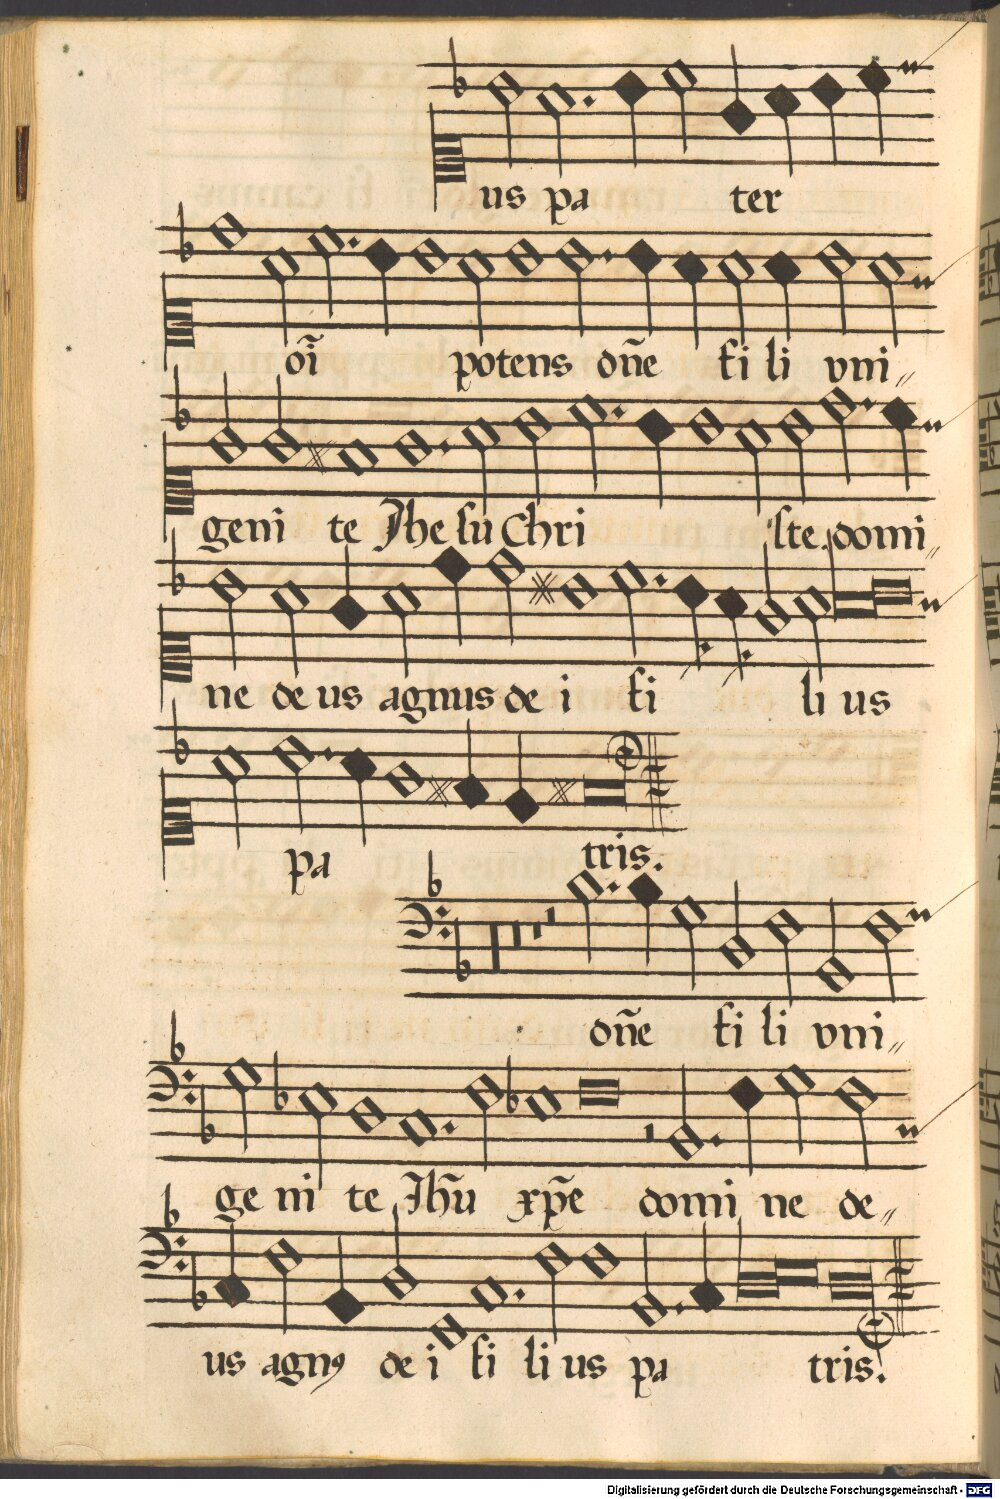 us pa ter
oi᷑ potens dñe fi li vni〃
geni te Jhe su Chri ste. domi〃
ne de us agnus de i fi li us
pa tris.
dñe fi li vni〃
ge ni te Jhu̅ xp̅e domi ne de〃
us agnꝰ de i fi li us pa tris.
Digitalisierung gefördert durch die Deutsche Forschungsgemeinschaft - DFG